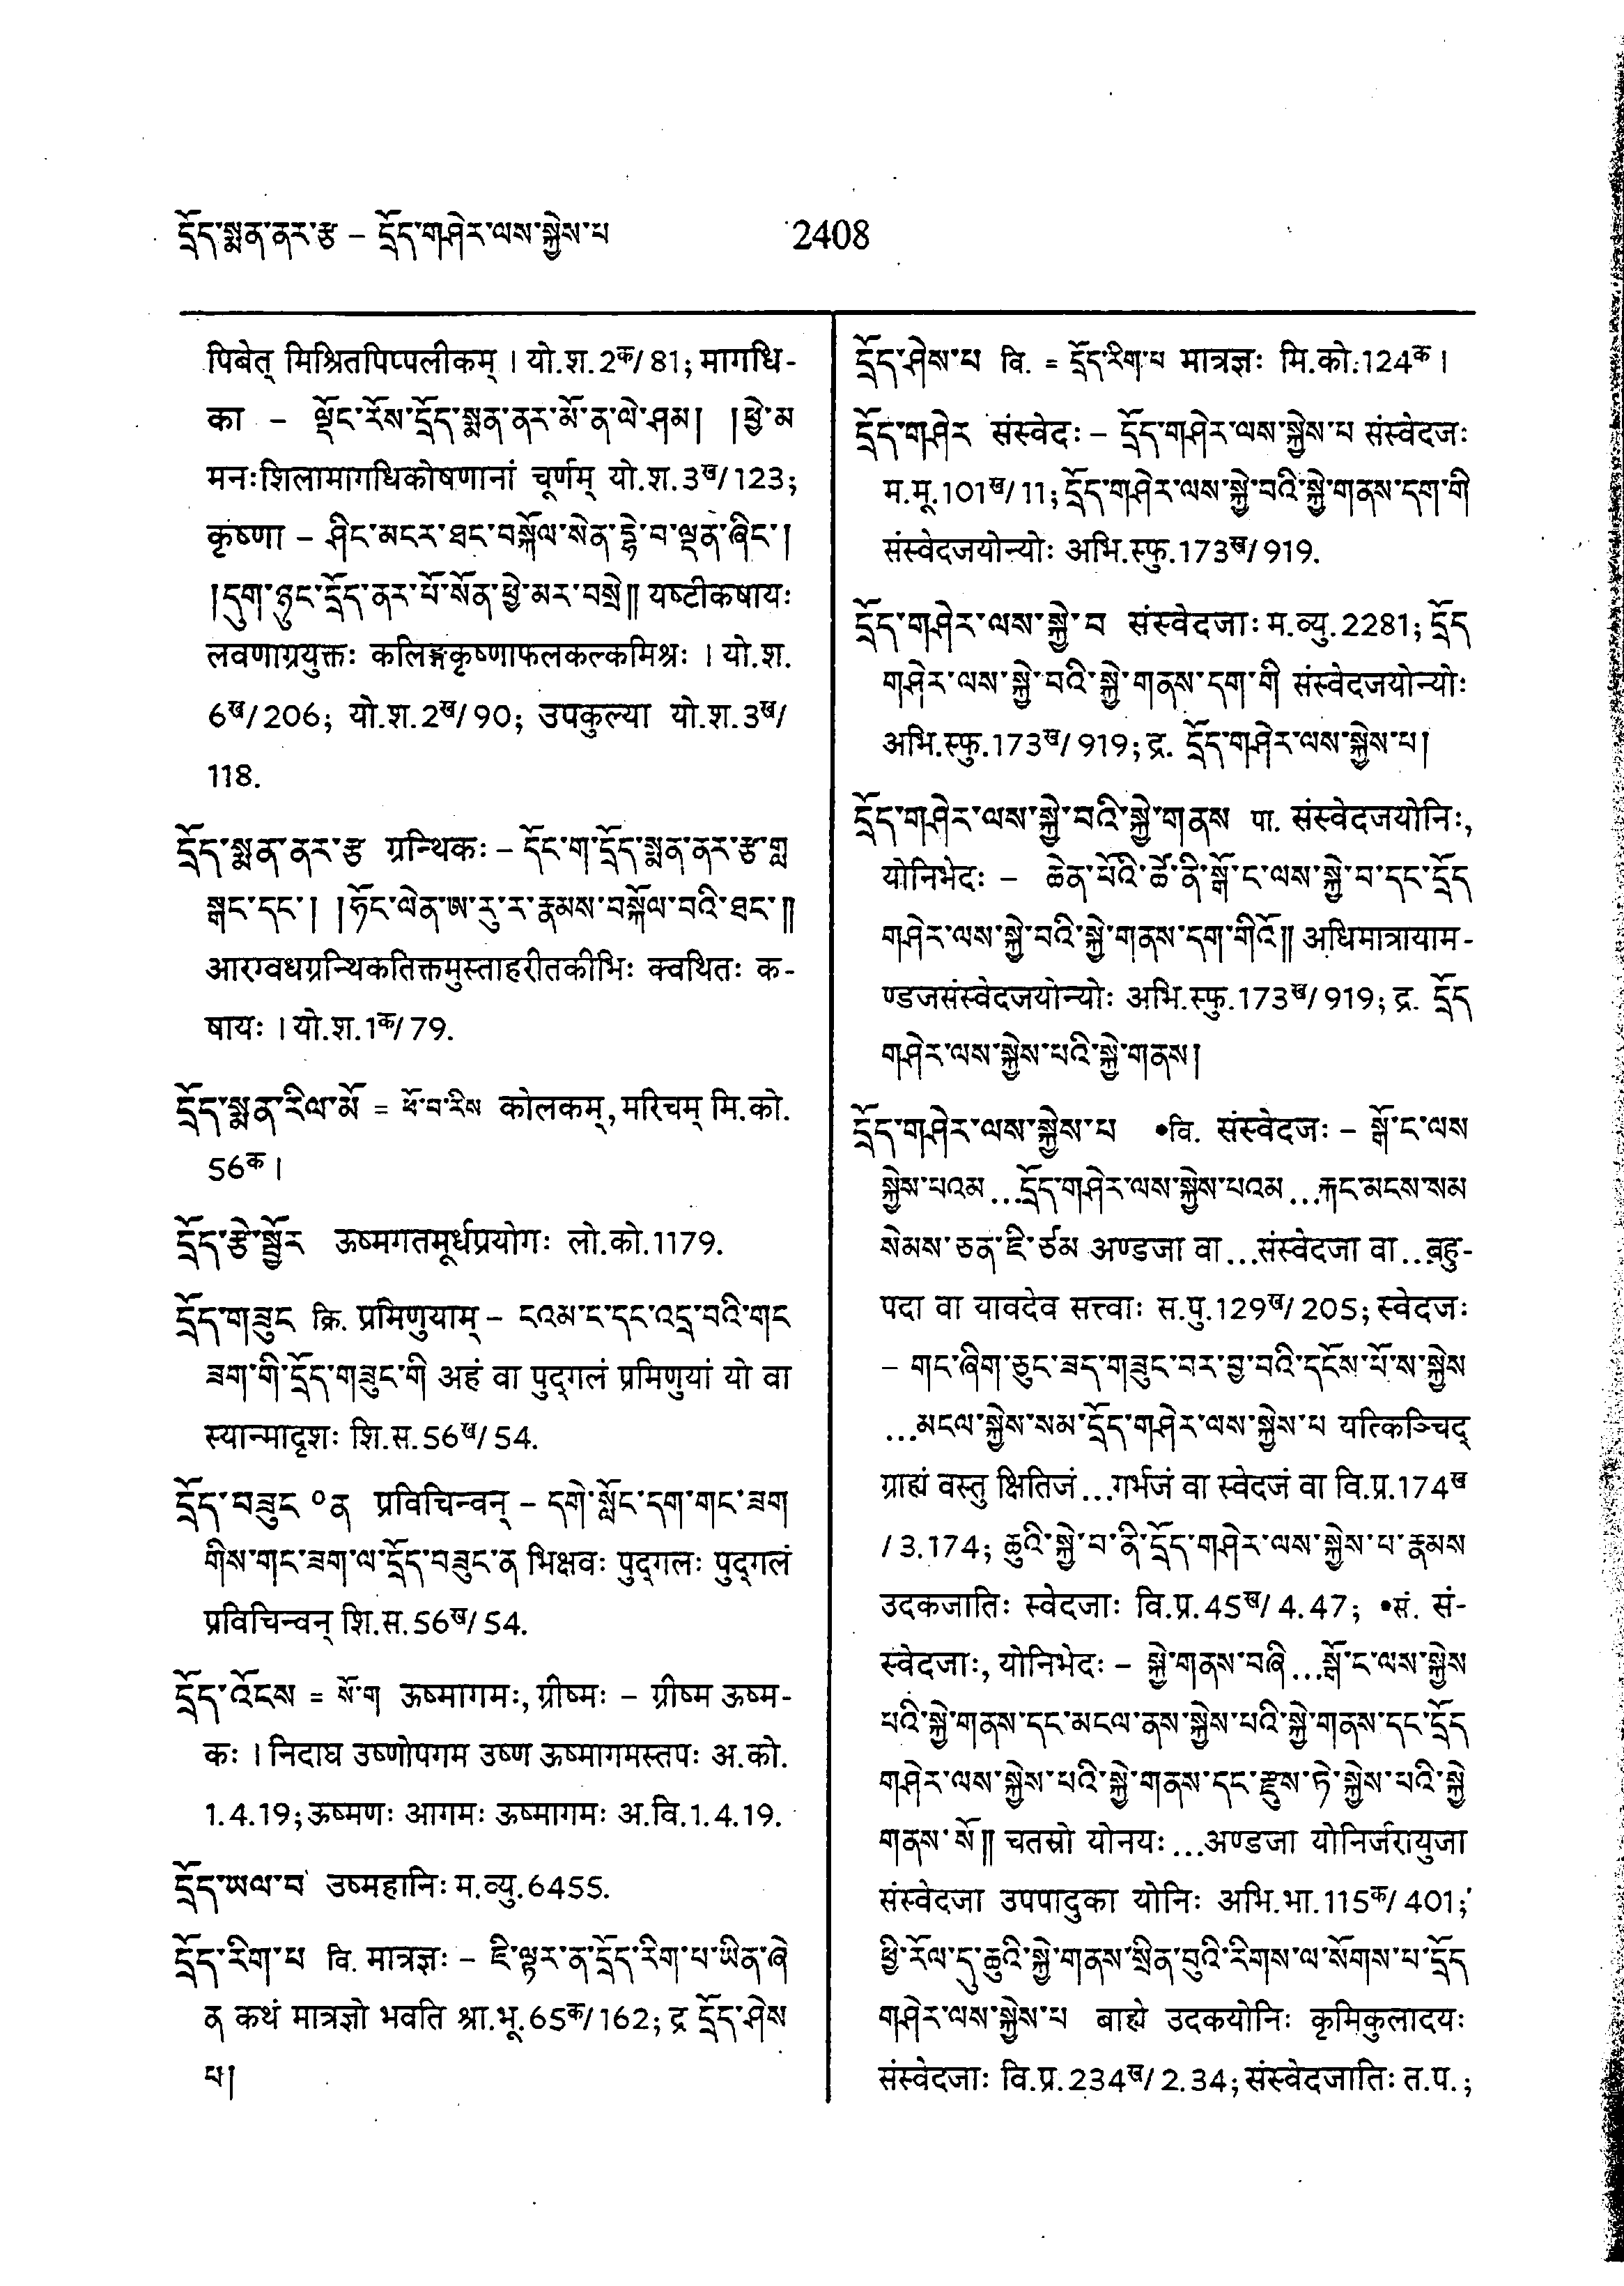 དྲོད་སྨན་ནར་རྩ – དྲོད་གཤེར་ལས་སྐྱེས་པ
2408
पिबेत् मिश्रितपिप्पलीकम् । यो.श.2क/81; मागधि-
का – ལྡོང་རོས་དྲོད་སྨན་ནར་མོ་ན་ལེ་ཤམ། །ཕྱེ་མ
मनःशिलामागधिकोषणानां चूर्णम् यो.श.3ख/123;
कृष्णा – ཤིང་མངར་ཐང་བསྐོལ་སེན་དྷེ་བ་ལྡན་ཞིང་།
།དུག་ཉུང་དྲོད་ནར་པོ་སོན་ཕྱེ་མར་བསྲེ༎ यष्टीकषायः
लवणाग्रयुक्तः कलिङ्गकृष्णाफलकल्कमिश्रः । यो.श.
6ख/206; यो.श.2ख/90; उपकुल्या यो.श.3ख/
118.
དྲོད་སྨན་ནར་རྩ ग्रन्थिकः – དོང་ག་དྲོད་སྨན་ནར་རྩ་གླ
སྒང་དང་། །ཧོང་ལེན་ཨ་རུ་ར་རྣམས་བསྐོལ་བའི་ཐང་༎
आरग्वधग्रन्थिकतिक्तमुस्ताहरीतकीभिः क्वथितः क-
षायः । यो.श.1क/79.
དྲོད་སྨན་རིལ་མོ = ཕོ་བ་རིས कोलकम्, मरिचम् मि.को.
56क ।
དྲོད་རྩེ་སྦྱོར ऊष्मगतमूर्धप्रयोगः लो.को.1179.
དྲོད་གཟུང क्रि. प्रमिणुयाम् – ངའམ་ང་དང་འདྲ་བའི་གང
ཟག་གི་དྲོད་གཟུང་གི अहं वा पुद्गलं प्रमिणुयां यो वा
स्यान्मादृशः शि.स.56ख/54.
དྲོད་བཟུང ०ན प्रविचिन्वन् – དགེ་སློང་དག་གང་ཟག
གིས་གང་ཟག་ལ་དྲོད་བཟུང་ན भिक्षवः पुद्गलः पुद्गलं
प्रविचिन्वन् शि.स.56ख/54.
དྲོད་འོངས = སོ་ག ऊष्मागमः, ग्रीष्मः – ग्रीष्म ऊष्म-
कः । निदाघ उष्णोपगम उष्ण ऊष्मागमस्तपः अ.को.
1.4.19; ऊष्मणः आगमः ऊष्मागमः अ.वि.1.4.19.
དྲོད་ཡལ་བ उष्महानिः म.व्यु.6455.
དྲོད་རིག་པ वि. मात्रज्ञः – ཇི་ལྟར་ན་དྲོད་རིག་པ་ཡིན་ཞེ
ན कथं मात्रज्ञो भवति श्रा.भू.65क/162; द्र དྲོད་ཤེས
པ།
དྲོད་ཤེས་པ वि. = དྲོད་རིག་པ मात्रज्ञः मि.को.124क ।
དྲོད་གཤེར संस्वेदः – དྲོད་གཤེར་ལས་སྐྱེས་པ संस्वेदजः
म.मू.101ख/11; དྲོད་གཤེར་ལས་སྐྱེ་བའི་སྐྱེ་གནས་དག་གི
संस्वेदजयोन्योः अभि.स्फु.173ख/919.
དྲོད་གཤེར་ལས་སྐྱེ་བ संस्वेदजाः म.व्यु.2281; དྲོད
གཤེར་ལས་སྐྱེ་བའི་སྐྱེ་གནས་དག་གི संस्वेदजयोन्योः
अभि.स्फु.173ख/919; द्र. དྲོད་གཤེར་ལས་སྐྱེས་པ།
དྲོད་གཤེར་ལས་སྐྱེ་བའི་སྐྱེ་གནས पा. संस्वेदजयोनिः,
योनिभेदः – ཆེན་པོའི་ཚེ་ནི་སྒོ་ང་ལས་སྐྱེ་བ་དང་དྲོད
གཤེར་ལས་སྐྱེ་བའི་སྐྱེ་གནས་དག་གིའོ༎ अधिमात्रायाम-
ण्डजसंस्वेदजयोन्योः अभि.स्फु.173ख/919; द्र. དྲོད
གཤེར་ལས་སྐྱེས་པའི་སྐྱེ་གནས།
དྲོད་གཤེར་ལས་སྐྱེས་པ •वि. संस्वेदजः – སྒོ་ང་ལས
སྐྱེས་པའམ...དྲོད་གཤེར་ལས་སྐྱེས་པའམ...རྐང་མངས་སམ
སེམས་ཅན་ཇི་ཙམ अण्डजा वा...संस्वेदजा वा...बहु-
पदा वा यावदेव सत्त्वाः स.पु.129ख/205; स्वेदजः
– གང་ཞིག་ཅུང་ཟད་གཟུང་བར་བྱ་བའི་དངོས་པོ་ས་སྐྱེས
...མངལ་སྐྱེས་སམ་དྲོད་གཤེར་ལས་སྐྱེས་པ यत्किञ्चिद्
ग्राह्यं वस्तु क्षितिजं...गर्भजं वा स्वेदजं वा वि.प्र.174ख
/3.174; ཆུའི་སྐྱེ་བ་ནི་དྲོད་གཤེར་ལས་སྐྱེས་པ་རྣམས
उदकजातिः स्वेदजाः वि.प्र.45ख/4.47; •सं. सं-
स्वेदजाः, योनिभेदः – སྐྱེ་གནས་བཞི...སྒོ་ང་ལས་སྐྱེས
པའི་སྐྱེ་གནས་དང་མངལ་ནས་སྐྱེས་པའི་སྐྱེ་གནས་དང་དྲོད
གཤེར་ལས་སྐྱེས་པའི་སྐྱེ་གནས་དང་རྫུས་ཏེ་སྐྱེས་པའི་སྐྱེ
གནས་སོ༎ चतस्रो योनयः...अण्डजा योनिर्जरायुजा
संस्वेदजा उपपादुका योनिः अभि.भा.115क/401;
ཕྱི་རོལ་དུ་ཆུའི་སྐྱེ་གནས་སྲིན་བུའི་རིགས་ལ་སོགས་པ་དྲོད
གཤེར་ལས་སྐྱེས་པ बाह्ये उदकयोनिः कृमिकुलादयः
संस्वेदजाः वि.प्र.234ख/2.34; संस्वेदजातिः त.प.;